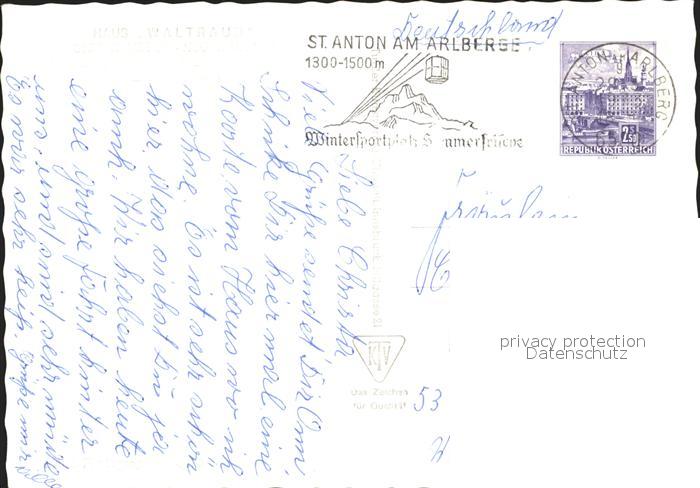 HAUS "WALTRAUD"
Deutschland
ST. ANTON AM ARLBERG
1300-1500 m
Wintersportplatz Sommerfrische
ST. ANTON A. ARLBERG
2.50
REPUBLIK ÖSTERREICH
Liebe Christa
Viele Grüße sendet Dir Omi
Schicke Dir hier mal eine
Karte vom Haus wo ich
wohne. Es ist sehr schön
hier was siehst Du ja
auch. Wir haben heute
eine große Fahrt hinter
uns. und sind sehr müde
Es war sehr heiß. Grüße mir
Fräulein
privacy protection
Datenschutz
KTV
Das Zeichen
für Qualität
53
W